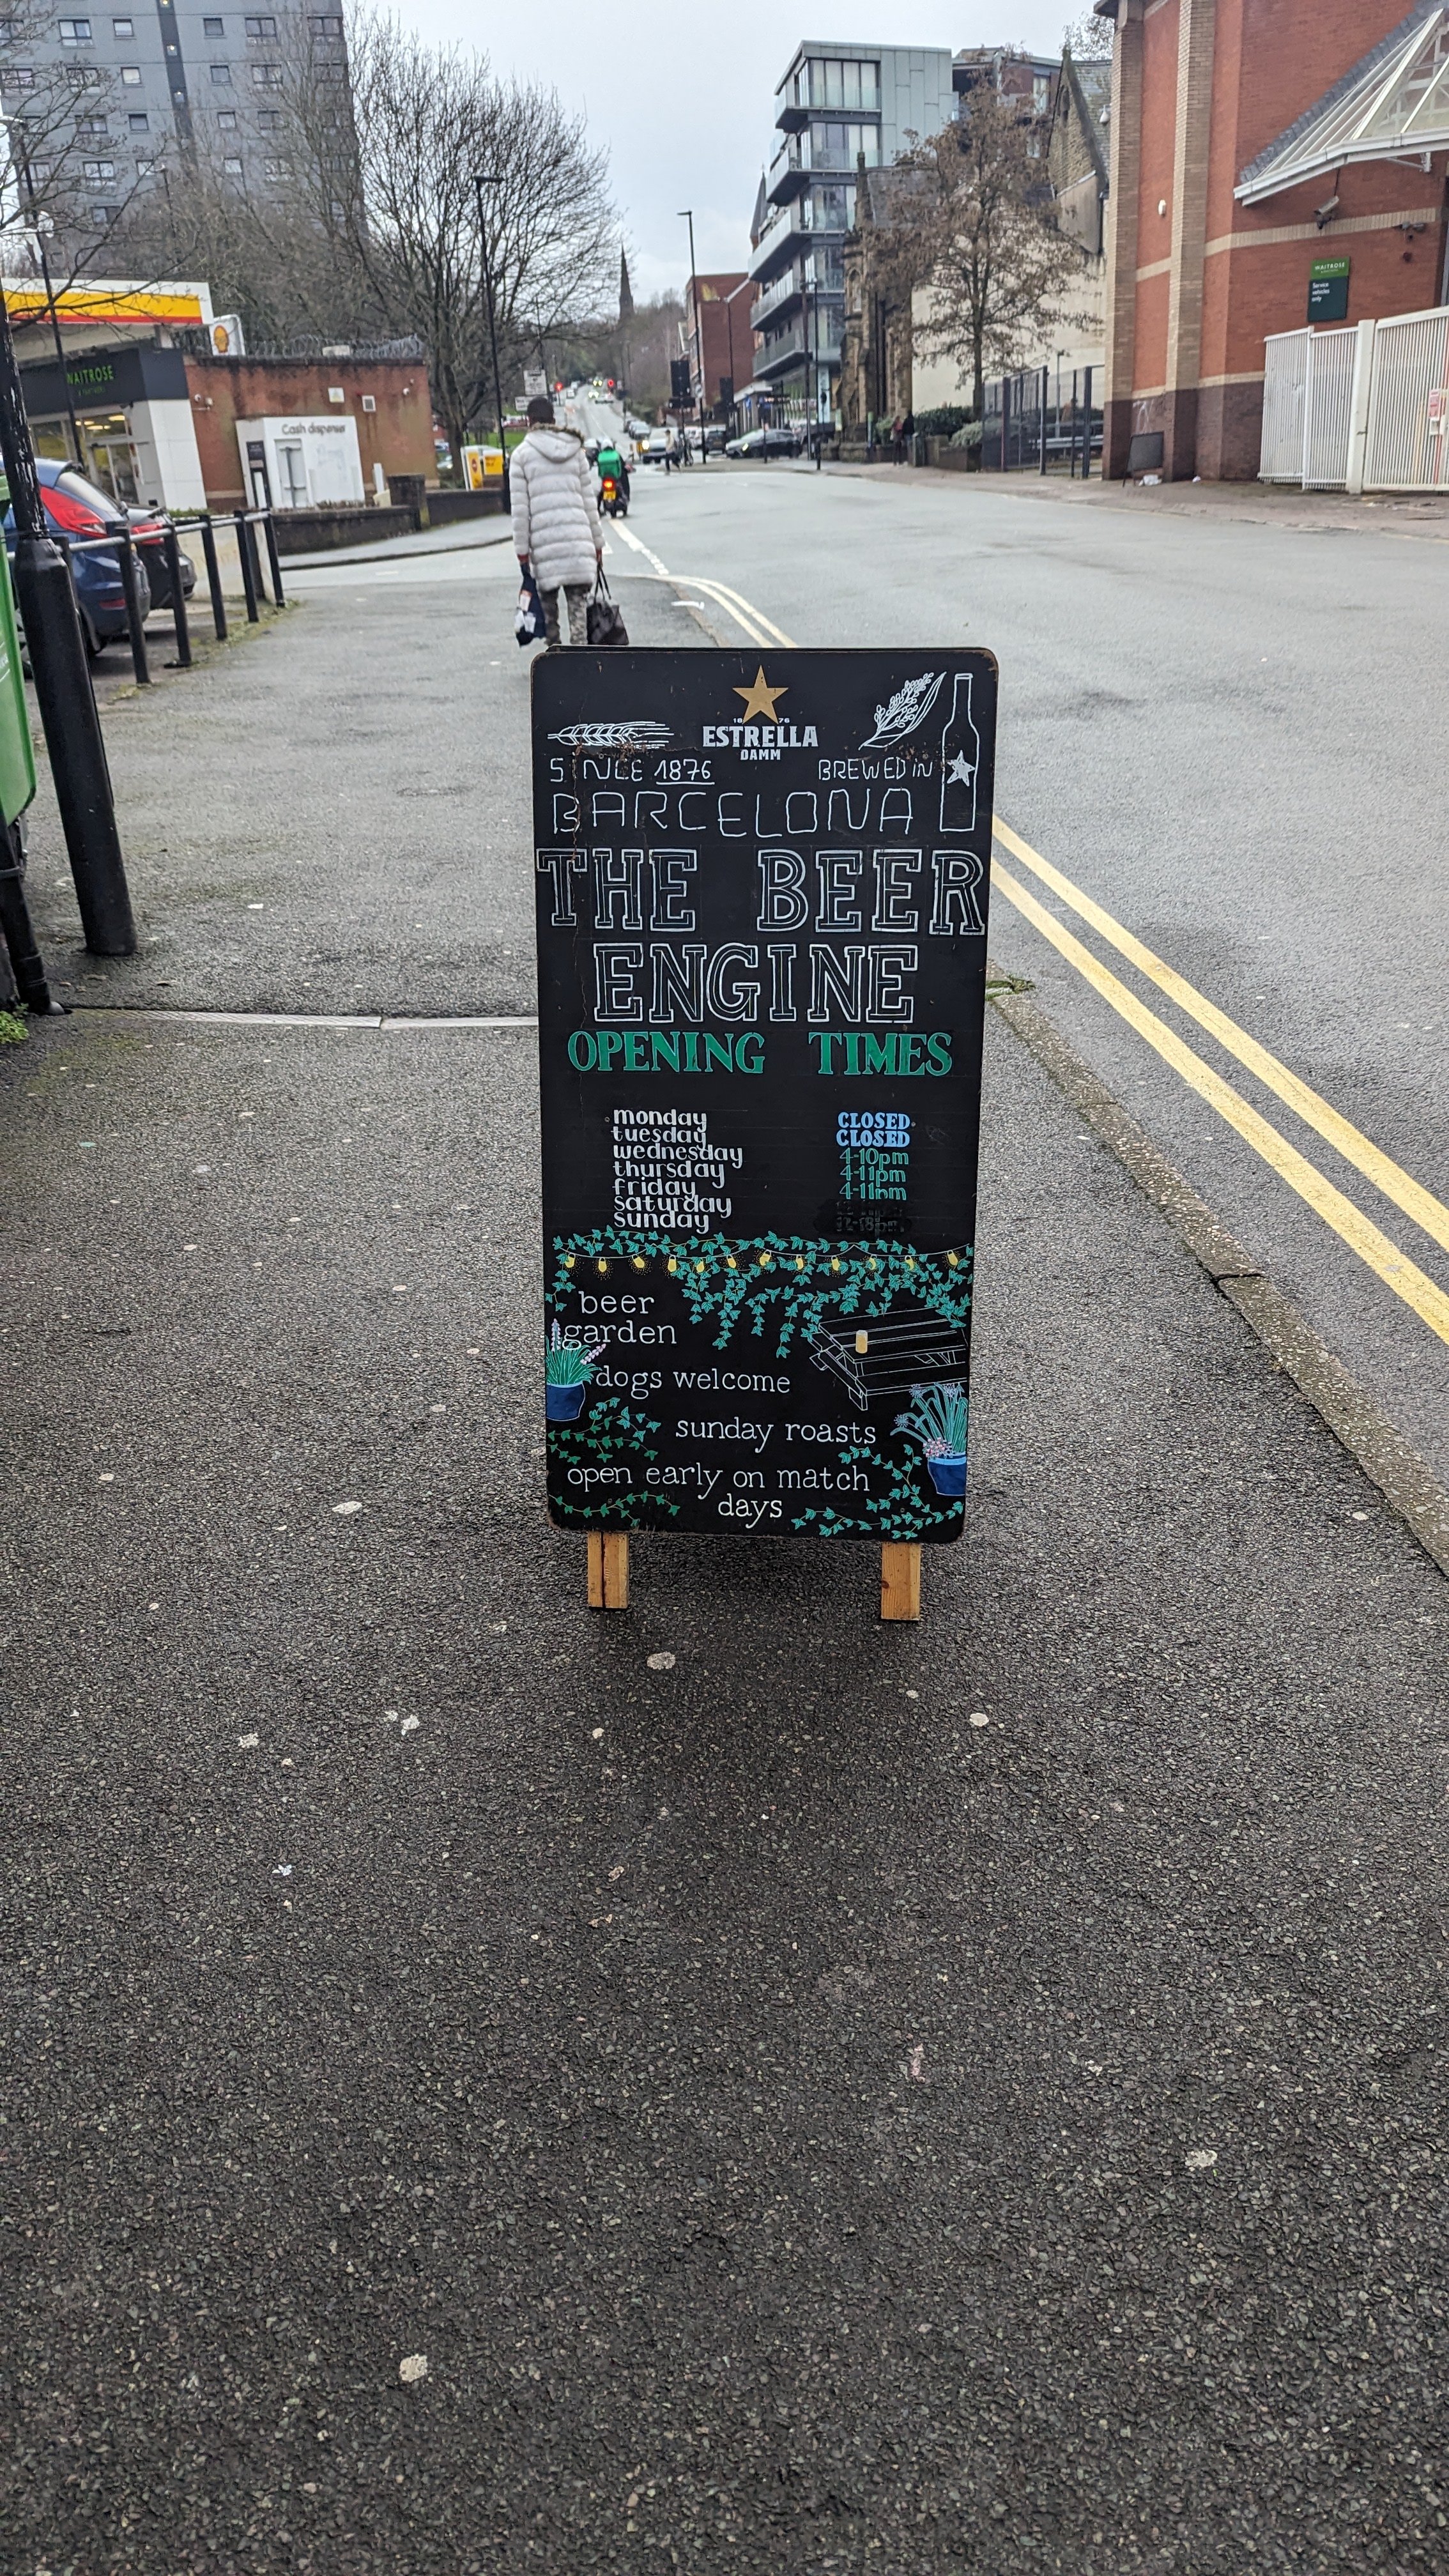 WAITROSE
Cash dispenser
WAITROSE
Service
vehicles
only
18 76
ESTRELLA
DAMM
SINCE 1876
BREWED IN
BARCELONA
THE BEER
ENGINE
OPENING TIMES
monday CLOSED
tuesday CLOSED
wednesday 4-10pm
thursday 4-11pm
friday 4-11pm
saturday
sunday
beer
garden
dogs welcome
sunday roasts
open early on match
days